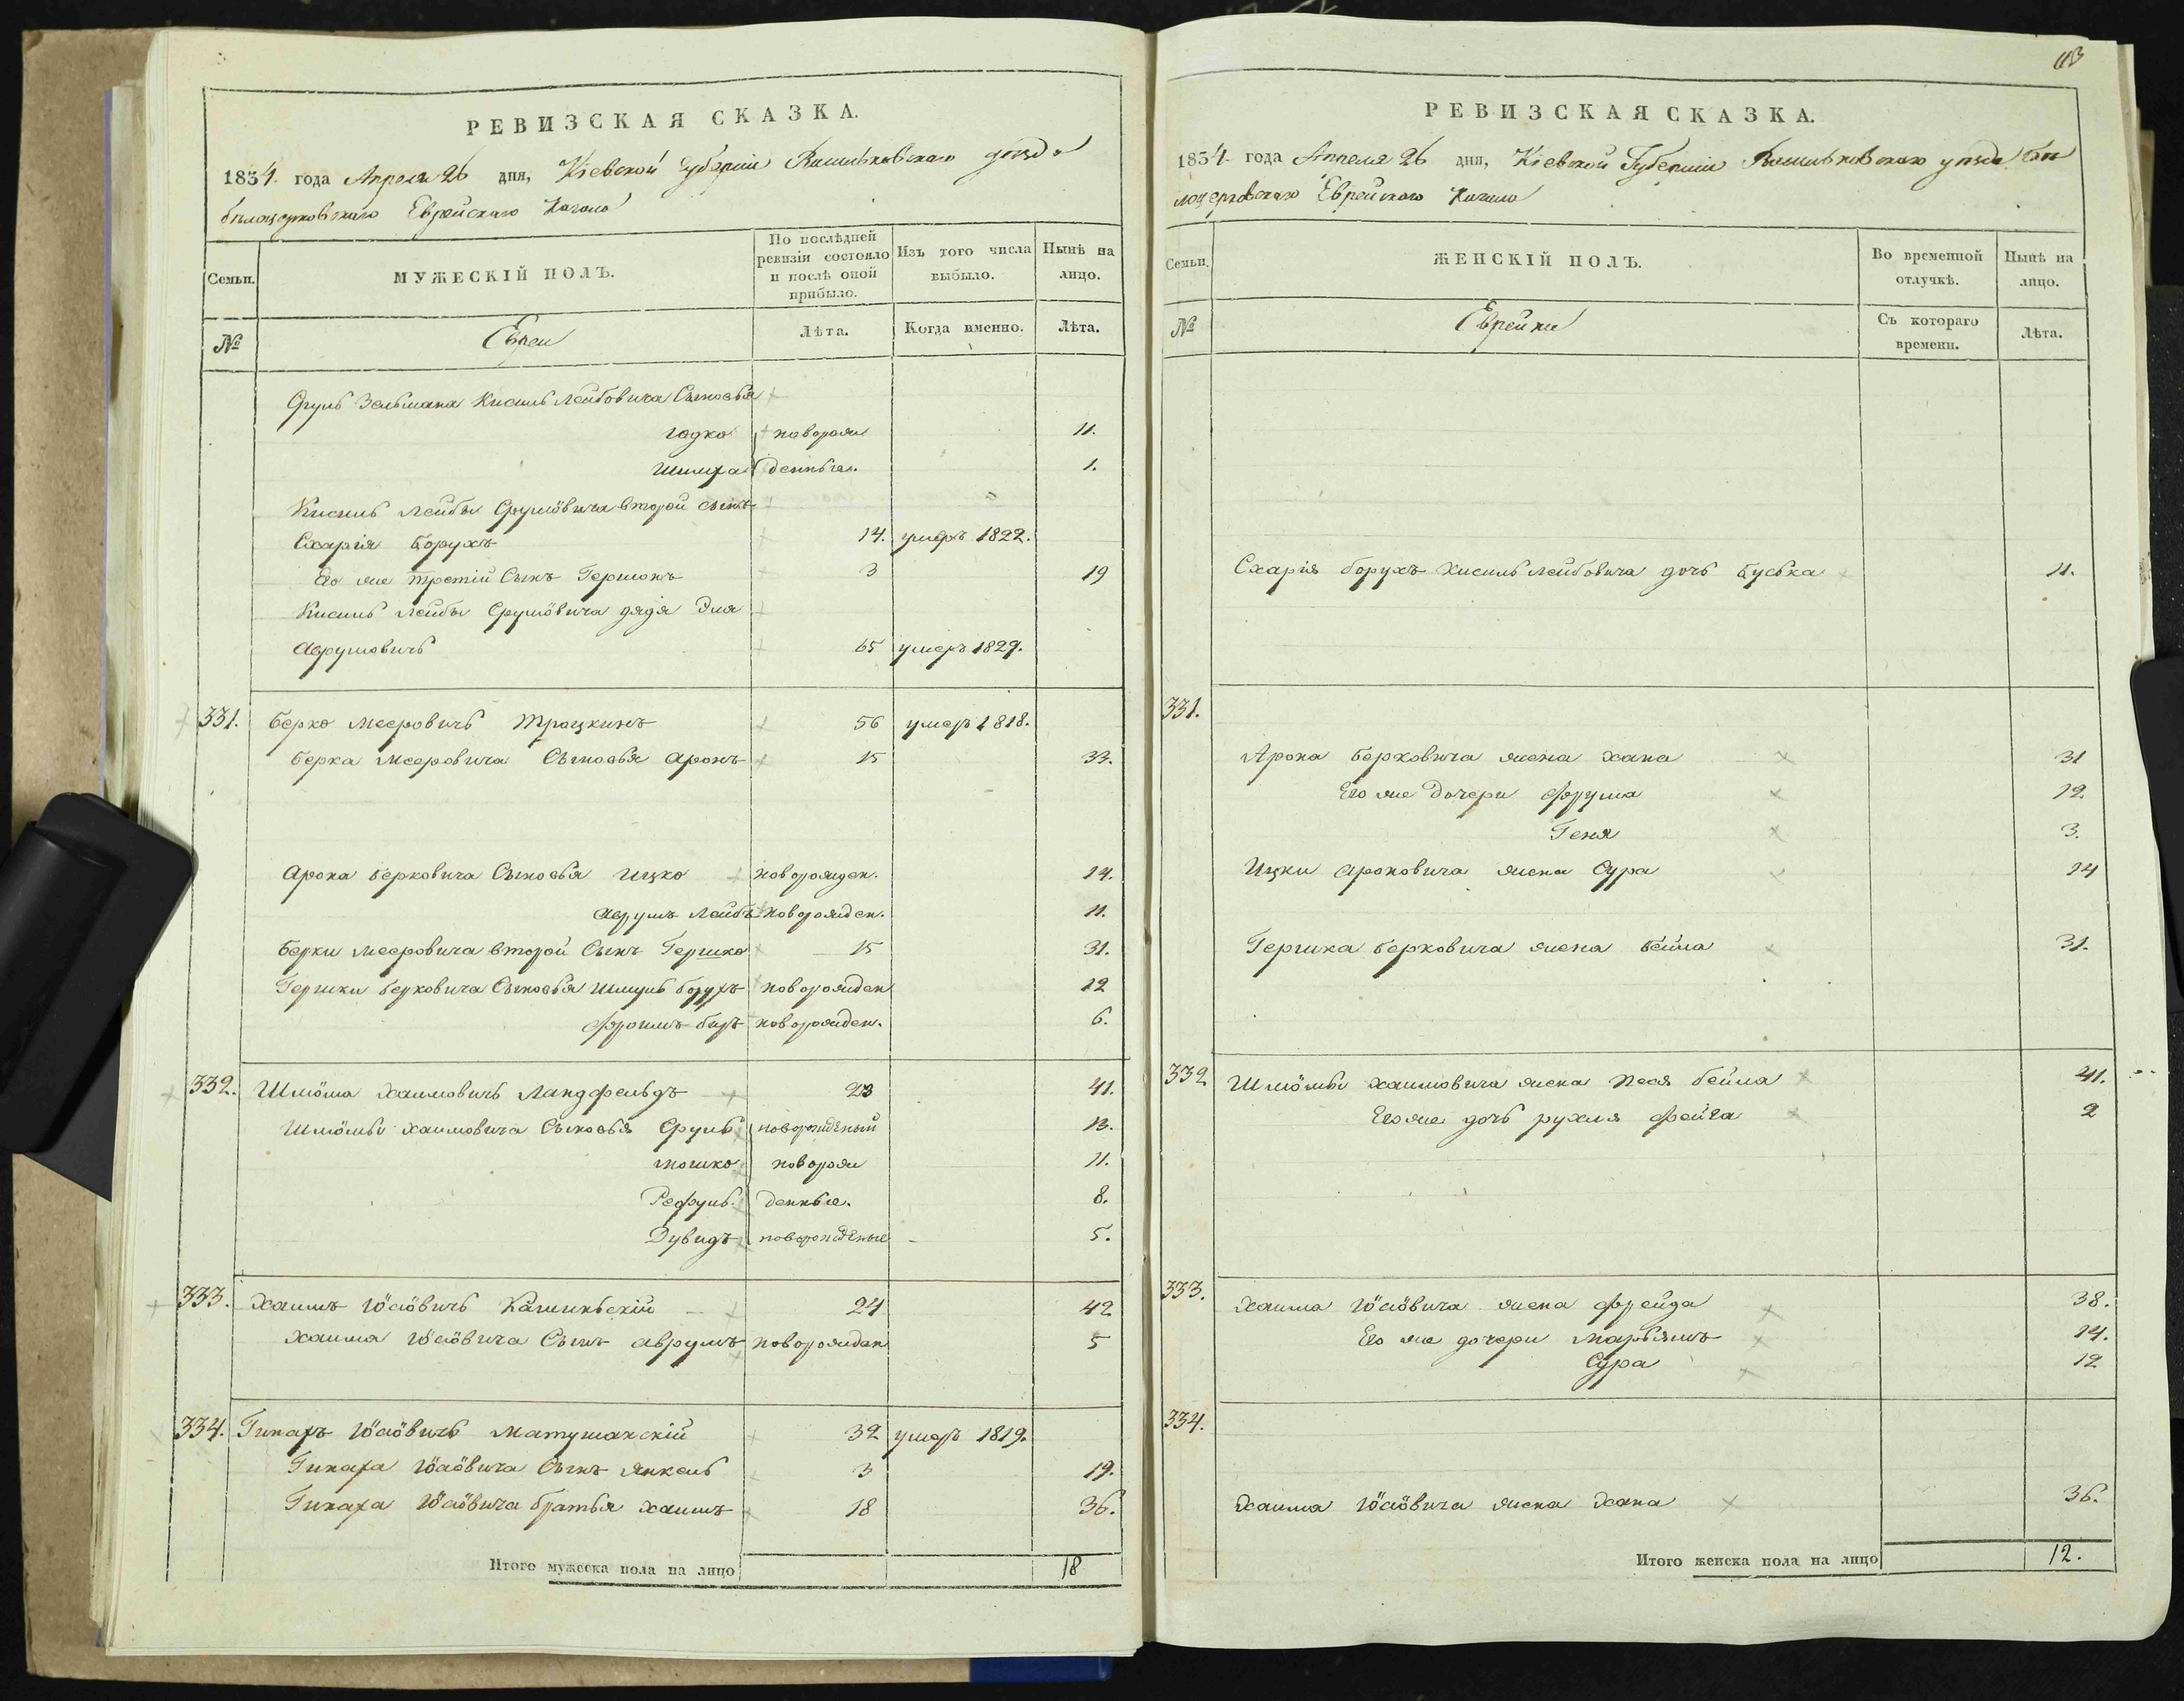 РЕВИЗСКАЯ СКАЗКА.
1834. года Апреля 26 дня, Кіевской Губерніи Васильковскаго уезда
белоцерковскаго Еврейскаго Кагала
Семьи. МУЖЕСКІЙ ПОЛЪ. По послѣдней ревизіи состояло и послѣ оной прибыло. Изъ того числа выбыло. Нынѣ на лицо.
№ Евреи Лѣта. Когда именно. Лѣта.
Сруль Зельмана Кисиль Лейбовича Сыновья
гадко новорож 11.
Шмиха денные. 1.
Кисиль Лейбы Сруліовича второй сынъ
Схарія Борухъ 14. умеръ 1822.
Его же третій Сынъ Гершонъ 3 19
Кисиль Лейбы Сруліовича дядя Эля
Аврумовичь 65 умеръ 1829.
331. Берко Мееровичь Трацкинъ 56 умеръ 1818.
Берка Мееровича Сыновья Аронъ 15 33.
Арона Берковича Сыновья Ицко новорожден. 14.
Аврумъ Лейбъ новорожден. 11.
Берки Мееровича второй Сынъ Гершко 15 31.
Гершки Берковича Сыновья Шмуль Борухъ новорожден 12
Фроимъ Беръ новорожден. 6.
332. Шліома Хаимовичь Ландфельдъ 23 41.
Шліомы Хаимовича Сыновья Сруль новорожденый 13.
мошко новорож 11.
Рефуль денные. 8.
Дувидъ новорожденые 5.
333. Хаимъ Іосіовичь Каминьскій 24 42
Хаима Іосіовича Сынъ Аврумъ новорожден 5
334. Пинахъ Іосіовичь Матушанскій 32 умеръ 1819.
Пинаха Іосіовича Сынъ Янкель 3 19.
Пинаха Іосіовича братья Хаимъ 18 36.
Итого мужеска пола на лицо 18
113
РЕВИЗСКАЯ СКАЗКА.
1834 года Апреля 26 дня, Кіевской Губерніи Васильковскаго уезда бе
лоцерковскаго Еврейскаго Кагала
Семьи. ЖЕНСКІЙ ПОЛЪ. Во временной отлучкѣ. Нынѣ на лицо.
№ Еврейки Съ котораго времени. Лѣта.
Схарія Борухъ Кисиль Лейбовича дочь Буська 11.
331.
Арона Берковича жена Хана 31
Его же Дочери Фрума 12.
Геня 3.
Ицки Ароновича жена Сура 14
Гершка Берковича жена Бейла 31.
332 Шліомы Хаимовича жена Песя Бейла 41.
Его же дочь рухля Фейга 2
333. Хаима Іосіовича жена Фрейда 38.
Его же дочери Марьямъ 14.
Сура 12
334.
Хаима Іосіовича жена Хана 36.
Итого женска пола на лицо 12.